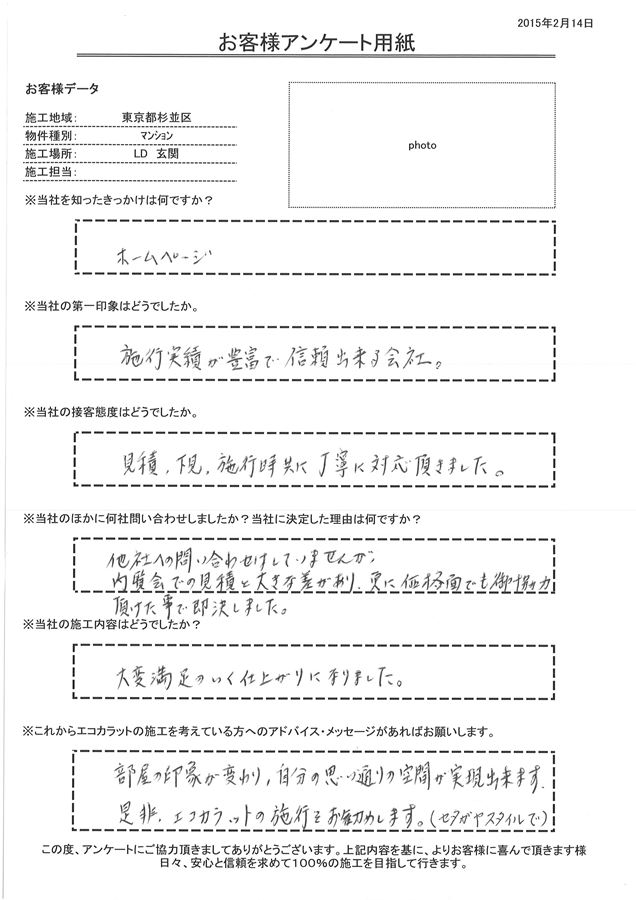 2015年2月14日
お客様アンケート用紙
お客様データ
施工地域： 東京都杉並区
物件種別： ﾏﾝｼｮﾝ
施工場所： LD 玄関
施工担当：
photo
※当社を知ったきっかけは何ですか？
ホームページ
※当社の第一印象はどうでしたか。
施行実績が豊富で信頼出来る会社。
※当社の接客態度はどうでしたか。
見積，下見，施行時共に丁寧に対応頂きました。
※当社のほかに何社問い合わせしましたか？当社に決定した理由は何ですか？
他社への問い合わせはしていませんが，
内覧会での見積と大きな差があり、更に価格面でも御協力
頂けた事で即決しました。
※当社の施工内容はどうでしたか？
大変満足のいく仕上がりに有りました。
※これからエコカラットの施工を考えている方へのアドバイス・メッセージがあればお願いします。
部屋の印象が変わり，自分の思い通りの空間が実現出来ます．
是非．エコカラットの施行をお勧めします。（セタガヤスタイルで）
この度、アンケートにご協力頂きましてありがとうございます。上記内容を基に、よりお客様に喜んで頂きます様
日々、安心と信頼を求めて100％の施工を目指して行きます。